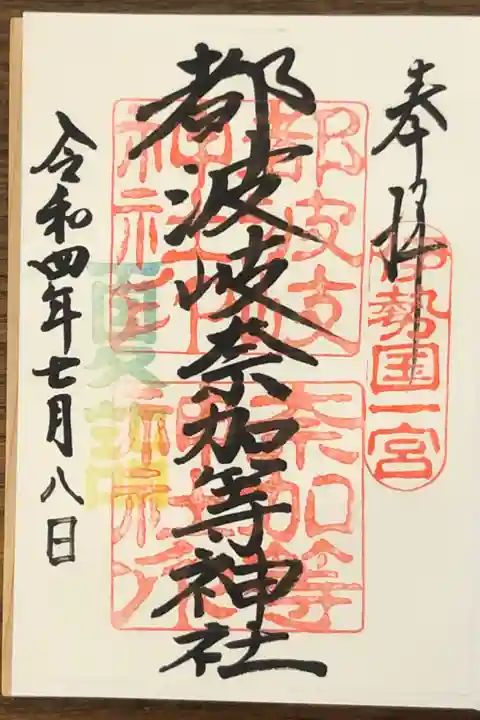 奉拝
伊勢国一宮
都波岐奈加等神社
都波岐
神社印
奈加等
神社印
夏詣
令和四年七月八日